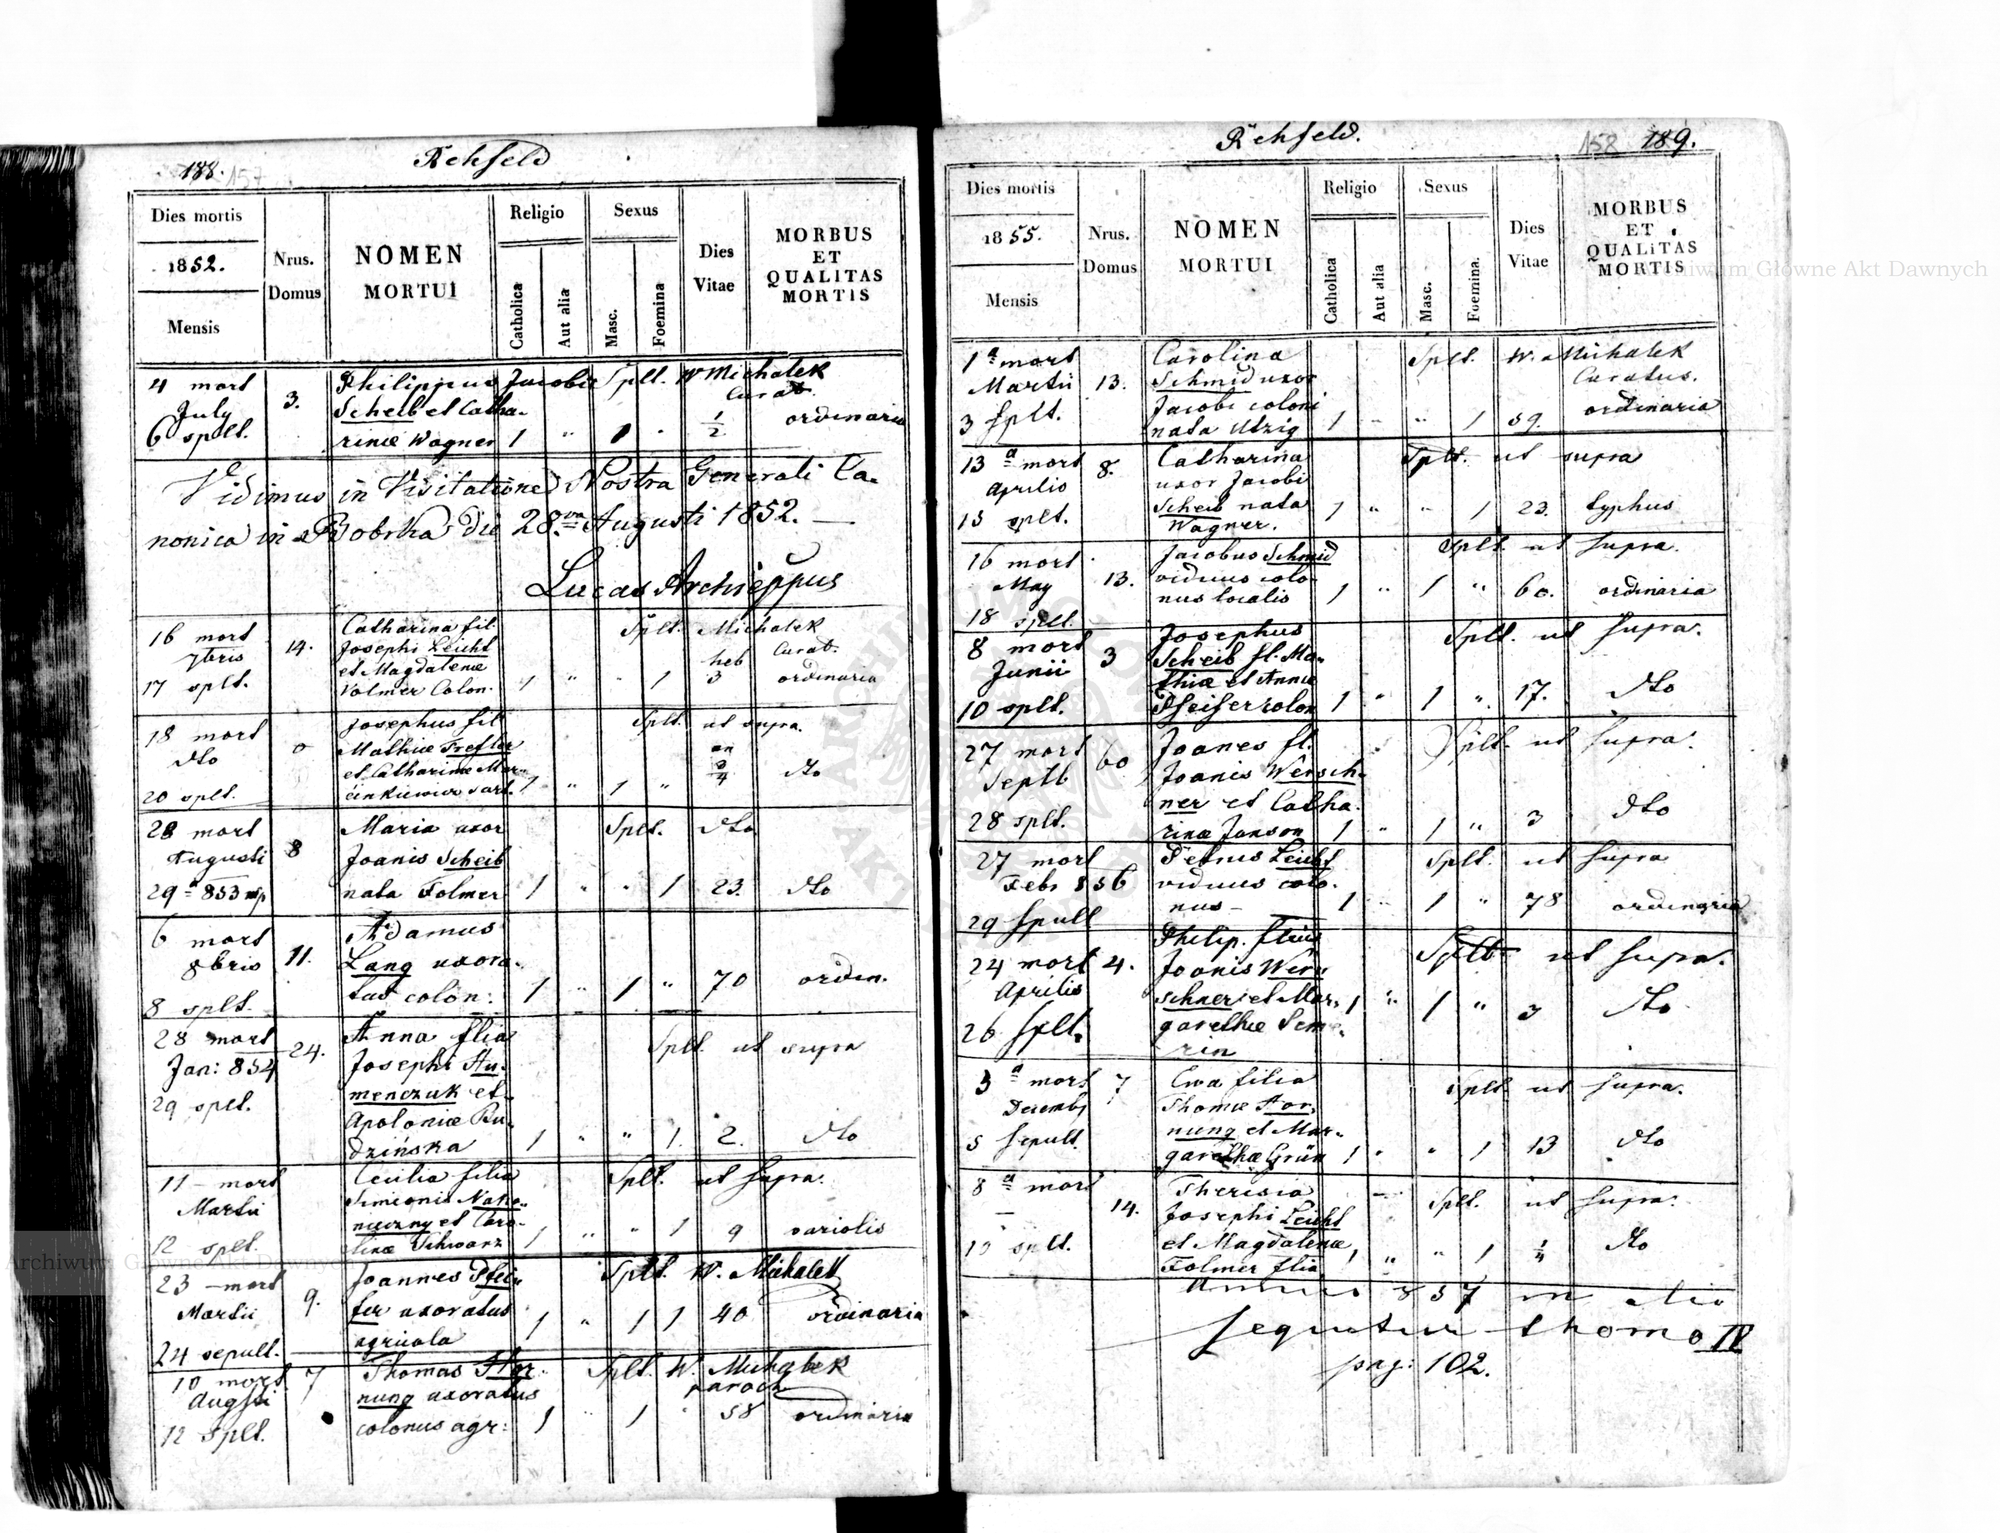 188. 157
Rehfeld
Dies mortis
1852.
Mensis
Nrus.
Domus
NOMEN
MORTUI
Religio
Catholica
Aut alia
Sexus
Masc.
Foemina
Dies
Vitae
MORBUS
ET
QUALITAS
MORTIS
4 mort
July
6 splt.
3.
Philippus Jacobi
Scheib et Catha-
rinæ Wagner
1 " 1 "
Splt. W Michalek
Curat.
1/2
ordinaria
Vidimus in Visitatione Nostra Generali Ca-
nonica in Bobrka die 28va Augusti 1852. —
Lucas Archieppus
16 mort
7bris
17 splt.
14.
Catharina fil.
Josephi Leicht
et Magdalenæ
Volmer Colon.
1 " " 1
Splt. Michalek
Curat.
heb
3
ordinaria
18 mort
dto
20 splt.
0
Josephus fil
Mathiæ Trefler
et Catharinæ Mar-
cinkiewicz sart.
1 " 1 "
Splt. ut supra.
an
3/4
dto
28 mort
Augusti
29a 853
8
Maria uxor
Joanis Scheib
nata Folmer
1 " " 1
Splt. dto
23.
dto
6 mort
8bris
8 splt.
11.
Adamus
Lang uxora-
tus colon.
1 " 1 "
70
ordin.
28 mort
Jan: 854
29 splt.
24.
Anna filia
Josephi Hu-
menczuk et
Apoloniæ Bu-
dzińska
1 " " 1.
Splt. ut supra
2.
dto
11 — mort
Martii
12 splt.
Cecilia filia
Simionis Nako-
nieczny et Caro-
linæ Schwarz
1 " " 1
Splt. ut supra.
9
variolis
23 — mort
Martii
24 sepult.
9.
Joannes Pfei-
fer uxoratus
agricola
1 " 1 1
Splt. W. Michalek
40
ordinaria
10 mort
Augsti
12 Splt.
7
Thomas Hor-
nung uxoratus
colonus agr:
1 " 1 "
Splt. W. Michalek
paroch
58
ordinaria
158 189.
Rehfeld.
Dies mortis
1855.
Mensis
Nrus.
Domus
NOMEN
MORTUI
Religio
Catholica
Aut alia
Sexus
Masc.
Foemina.
Dies
Vitae
MORBUS
ET
QUALITAS
MORTIS
1a mort
Martii
3 splt.
13.
Carolina
Schmid uxor
Jacobi coloni
nata Utzig
1 " " 1
Splt. W. Michalek
Curatus.
59.
ordinaria
13a mort
Aprilis
15 splt.
8.
Catharina
uxor Jacobi
Scheib nata
Wagner.
1 " " 1
Splt. ut supra
23.
typhus
16 mort
May
18 splt.
13.
Jacobus Schmid
viduus colo-
nus localis
1 " 1 "
Splt. ut supra.
60.
ordinaria
8 mort
Junii
10 splt.
3
Josephus
Scheib fl. Ma-
thiæ et Annæ
Pfeifer colon
1 " 1 "
Splt. ut supra.
17.
dto
27 mort
Septb
28 splt.
60
Joanes fl.
Joanis Wersch-
ner et Catha-
rinæ Janson
1 " 1 "
Splt. ut supra.
3
dto
27 mort
Febr 856
29 Spult
Petrus Leicht
viduus colo-
nus —
1 " 1 "
Splt. ut supra
78
ordinaria
24 mort
Aprilis
26 Splt.
4.
Philip. filius
Joanis Wer-
schner et Mar-
garethæ Seme-
rin
1 " 1 "
Splt ut supra.
3
dto
3a mort
Decemb
5 Sepult
7
Ewa filia
Thomæ Hor-
nung et Mar-
garethæ Grün
1 " " 1
Splt. ut supra.
13
dto
8a mort
—
10 splt.
14.
Theresia
Josephi Leicht
et Magdalenæ
Folmer filia
1 " " 1
Splt. ut supra.
1/4
dto
Annus 857 in alio
sequitur thomo IV
pag: 102.
Archiwum Główne Akt Dawnych